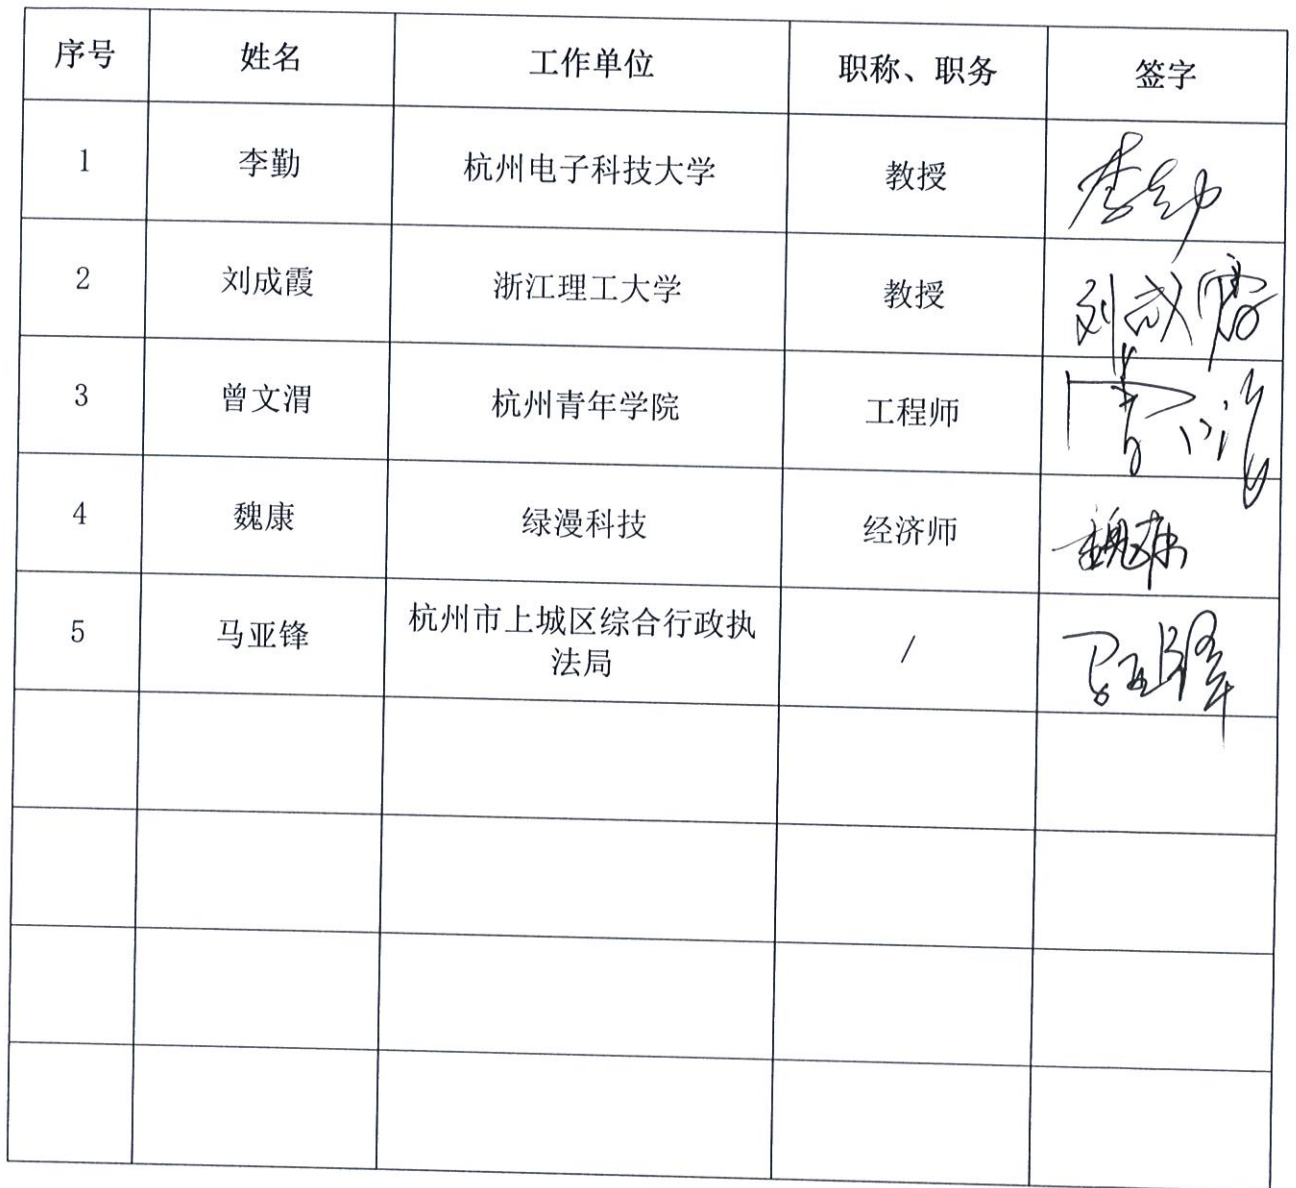 序号 姓名 工作单位 职称、职务 签字
1 李勤 杭州电子科技大学 教授 李勤
2 刘成霞 浙江理工大学 教授 刘成霞
3 曾文渭 杭州青年学院 工程师
4 魏康 绿漫科技 经济师 魏康
5 马亚锋 杭州市上城区综合行政执 / 马亚锋
法局